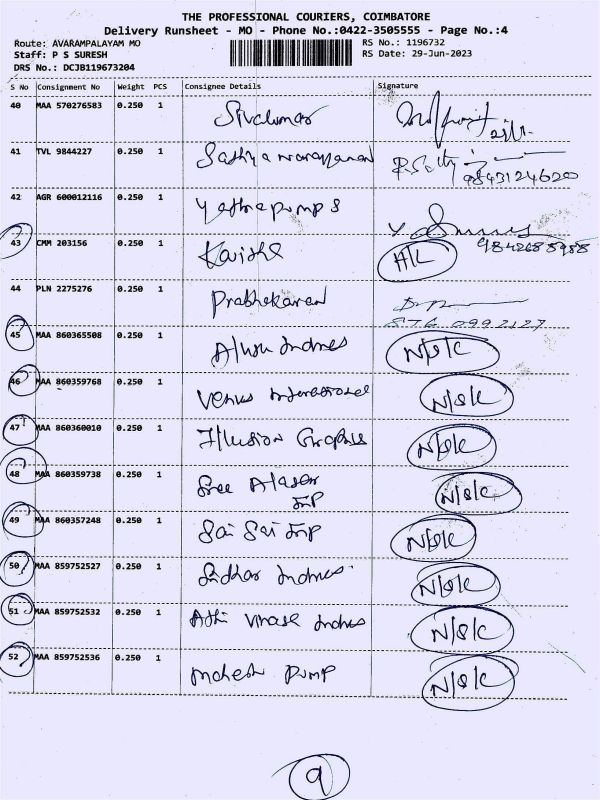 THE PROFESSIONAL COURIERS, COIMBATORE
Delivery Runsheet - MO - Phone No.:0422-3505555 - Page No.:4
Route: AVARAMPALAYAM MO RS No.: 1196732
Staff: P S SURESH RS Date: 29-Jun-2023
DRS No.: DCJB119673204
S No Consignment No Weight PCS Consignee Details Signature
40 MAA 570276583 0.250 1 Sivakumar
41 TVL 9844227 0.250 1 Sathya narayanan
9843124620
42 AGR 600012116 0.250 1 Yathra pumps
9842685988
43 CMM 203156 0.250 1 Kavitha A/L
44 PLN 2275276 0.250 1 Prabhakaran
45 MAA 860365508 0.250 1 N/S/C
46 MAA 860359768 0.250 1 Venus International N/S/C
47 MAA 860360010 0.250 1 Illusion Graphics N/S/C
48 MAA 860359738 0.250 1 Sree N/S/C
49 MAA 860357248 0.250 1 Sai Sai Imp N/S/C
50 MAA 859752527 0.250 1 Sidhar Indnes N/S/C
51 MAA 859752532 0.250 1 N/S/C
52 MAA 859752536 0.250 1 Mahesh Pump N/S/C
9